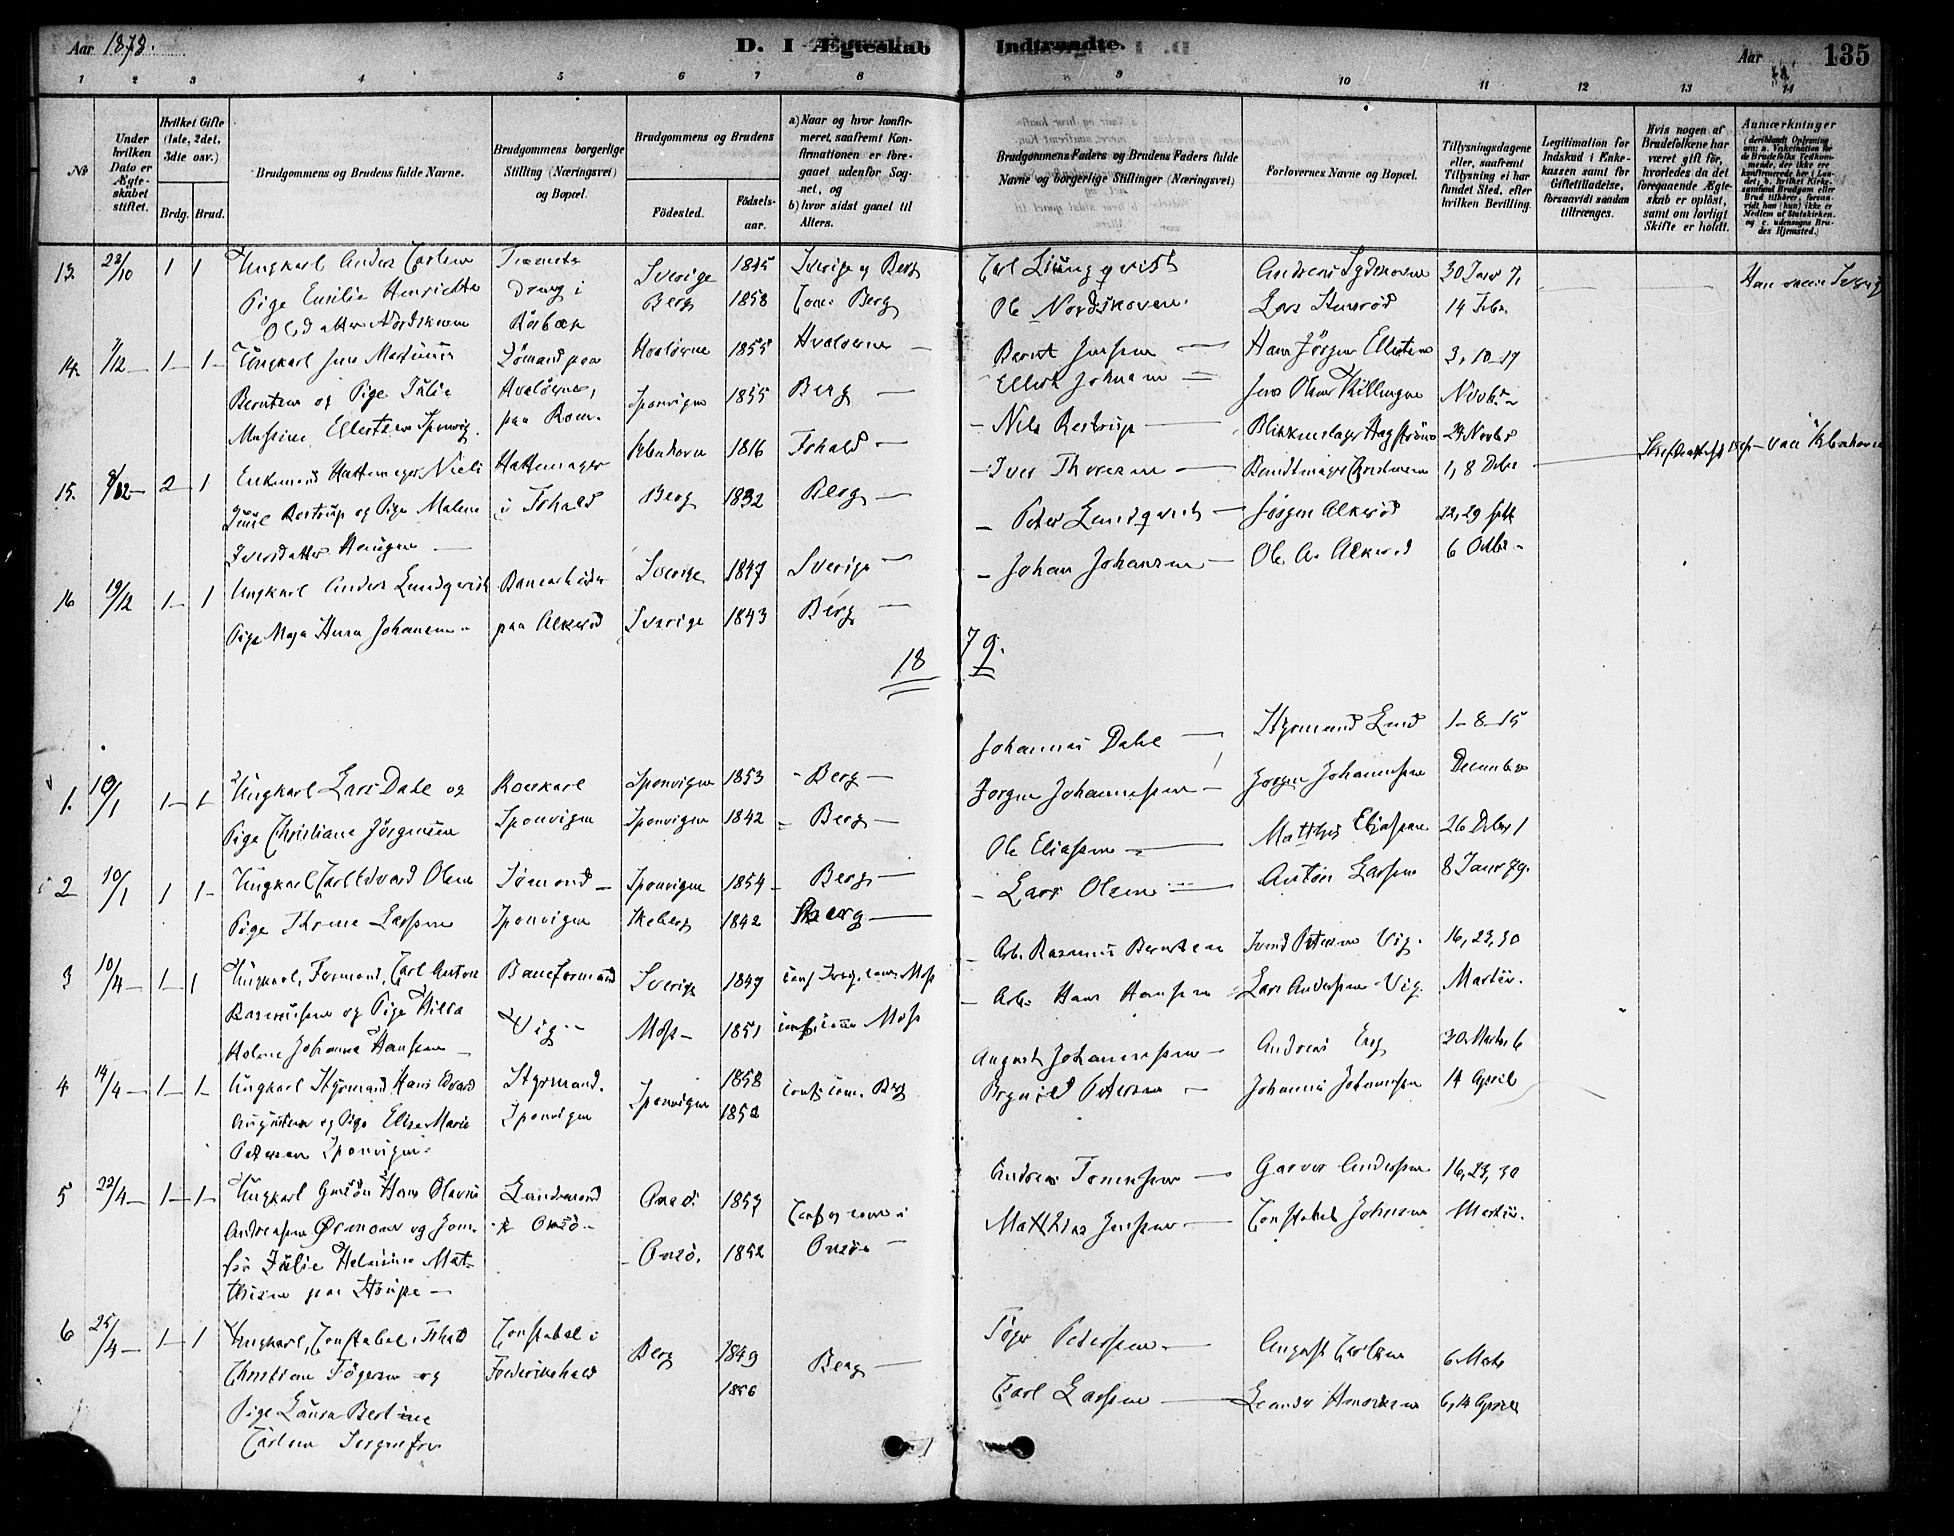 Aar 1878.
D. I Ægteskab Indtraadte.
Aar
135
1 2 3 4 5 6 7 8 9 10 11 12 13 14
No
Under hvilken Dato er Ægteskabet stiftet.
Hvilket Gifte (1ste, 2det, 3die osv.)
Brdg. Brud.
Brudgommens og Brudens fulde Navne.
Brudgommens borgerlige Stilling (Næringsvei) og Bopæl.
Brudgommens og Brudens
Födested.
Födsels-aar.
a) Naar og hvor konfirmeret, saafremt Konfirmationen er foregaaet udenfor Sognet, og
b) hvor sidst gaaet til Alters.
Brudgommens Faders og Brudens Faders fulde Navne og borgerlige Stillinger (Næringsvei)
Forlovernes Navne og Bopæl.
Tillysningsdagene eller, saafremt Tillysning ei har fundet Sted, efter hvilken Bevilling.
Legitimation for Indskud i Enkekassen samt for Giftetilladelse, forsaavidt saadan tiltrænges.
Hvis nogen af Brudefolkene har været gift för, hvorledes da det foregaaende Ægteskab er oplöst, samt om lovligt Skifte er holdt.
Anmærkninger
13. 22/10 1 1 Ungkarl Anders Carlsen
Pige Emilie Henriette
Olsdatter Nordskoven
Dreng i
Sverige 1845 Sverige og Berg
Berg 1858 Conf. Berg
Carl Liungqvist
Ole Nordskoven.
14 Febr.
14. 1/12 1 1 Ungkarl Jens Martinius
Berntsen og Pige Julie
Mathine Ellertsen Sponvig.
Sömand paa
Hvalöerne,
Hvaløerne 1855 Hvaløerne
Sponvigen 1855 Berg
Bernt Jensen
Ellert Johansen
Hans Jörgen Ellertsen
Jens Olsen Killingen
3, 10, 17
Novbr.
15. 8/12 2 1 Enkemand Hattemager Niels
Juul Rostrup og Pige Malene
Iversdatter Haugen
Hattemager
i Fhald
Kbenhavn 1816 Fhald
Berg 1832 Berg
Nils Rostrup
Iver Thoresen
Blikkenslager Hagström
24 Novbr
1, 8 Debr
16 19/12 1 1 Ungkarl Anders Lundqvist
Pige Maja Anna Johansen
Banearbeider
paa Alkerød
Sverige 1847 Sverige
Sverige 1843 Berg
Peter Lundqvist
Johan Johansen
Jörgen Alkerød
Ole A. Alkerød
22, 29 Sept
6 Octbr
1879.
1. 10/1 1 1 Ungkarl Lars Dahl og
Pige Christiane Jörgensen
Sponvigen
Sponvigen 1853 Berg
Sponvigen 1842 Berg
Johannes Dahl
Jörgen Johannesen
Styrmand Lund
Jörgen Johannesen
1 - 8 - 15
December
2 10/1 1 1 Ungkarl Carl Edvard Olsen
Pige Thrine Larssen
Sömand
Sponvigen
Sponvigen 1854 Berg
Skeberg 1842 Berg
Ole Eliassen
Lars Olsen
Matthis Eliassen
Anton Larssen
26 Debr 1
8 Janr 79.
3 10/4 1 1 Ungkarl, Formand, Carl Anton
Rasmussen og Pige Hilda
Helene Johanna Hanssen
Baneformand
Vig.
Sverige 1849
Moss 1851
Arb. Rasmus Berntsen
Arb. Hans Hanssen
Svend Petersen Vig.
Lars Andersen Vig.
16, 23, 30
Marts.
4 14/4 1 1 Ungkarl Styrmand Hans Edvard
Augustsen og Pige Elise Marie
Petersen Sponvigen.
Styrmand.
Sponvigen
Sponvigen 1858
1852
Conf. com. Berg
August Johannessen
Brynild Petersen
Andreas Eng
Johannes Johannesen
30 Marts 6
14 April
5 22/4 1 1 Ungkarl Hans Olavus
Andreassen og Jom-
fru Julie Helmine Mat-
thisen paa
Landmand
Onsö
Onsö 1857
Onsö. 1852
Onsö
Andreas Tomessen
Matthias Jenssen
Andersen
Constabel Johnsen
16, 23, 30
Marts.
6 25/4 1 1 Ungkarl, Constabel i Fhald
Christian Tögersen og
Pige Laura Bertine
Carlsen
Constabel i
Frederikshald
Berg 1849 Berg
1856
Töger Pedersen
Carl Larssen
August Carlsen
6 Marts
6, 14 April